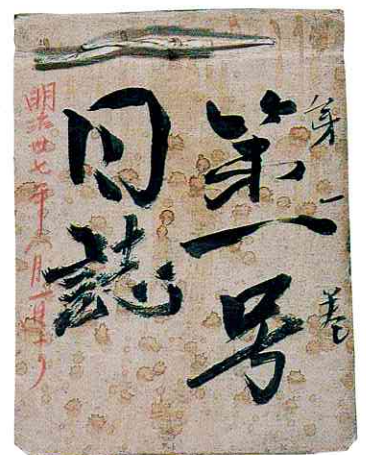 第一巻
第一号
日誌
明治廿七年八月一日ヨリ